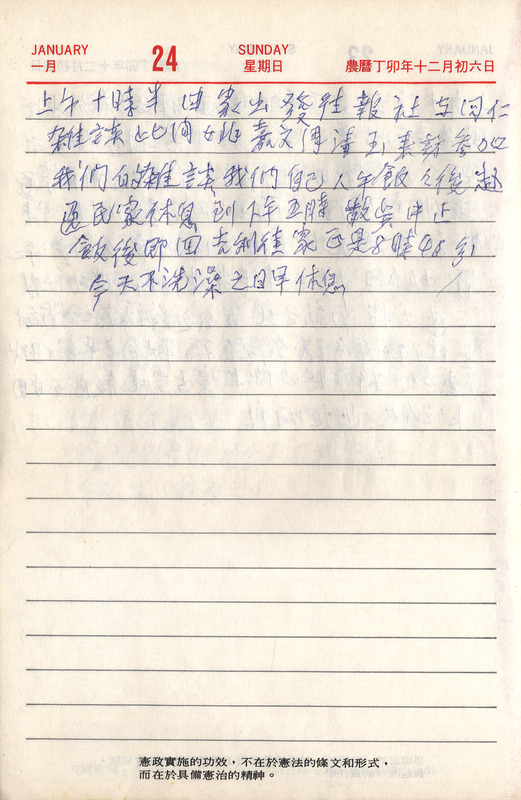 JANUARY 24 SUNDAY
一月 星期日 農曆丁卯年十二月初六日
上午十時半由家出發往報社与同仁
雜談此间 嘉文傅清玉來訪参加
我们的雜談我们自己人午飯々後
民家休息到下午五時散賀中止
飯後即回吉利徒家正是8時48分
今天不洗澡之日早休息
憲政實施的功效，不在於憲法的條文和形式，
而在於具備憲治的精神。